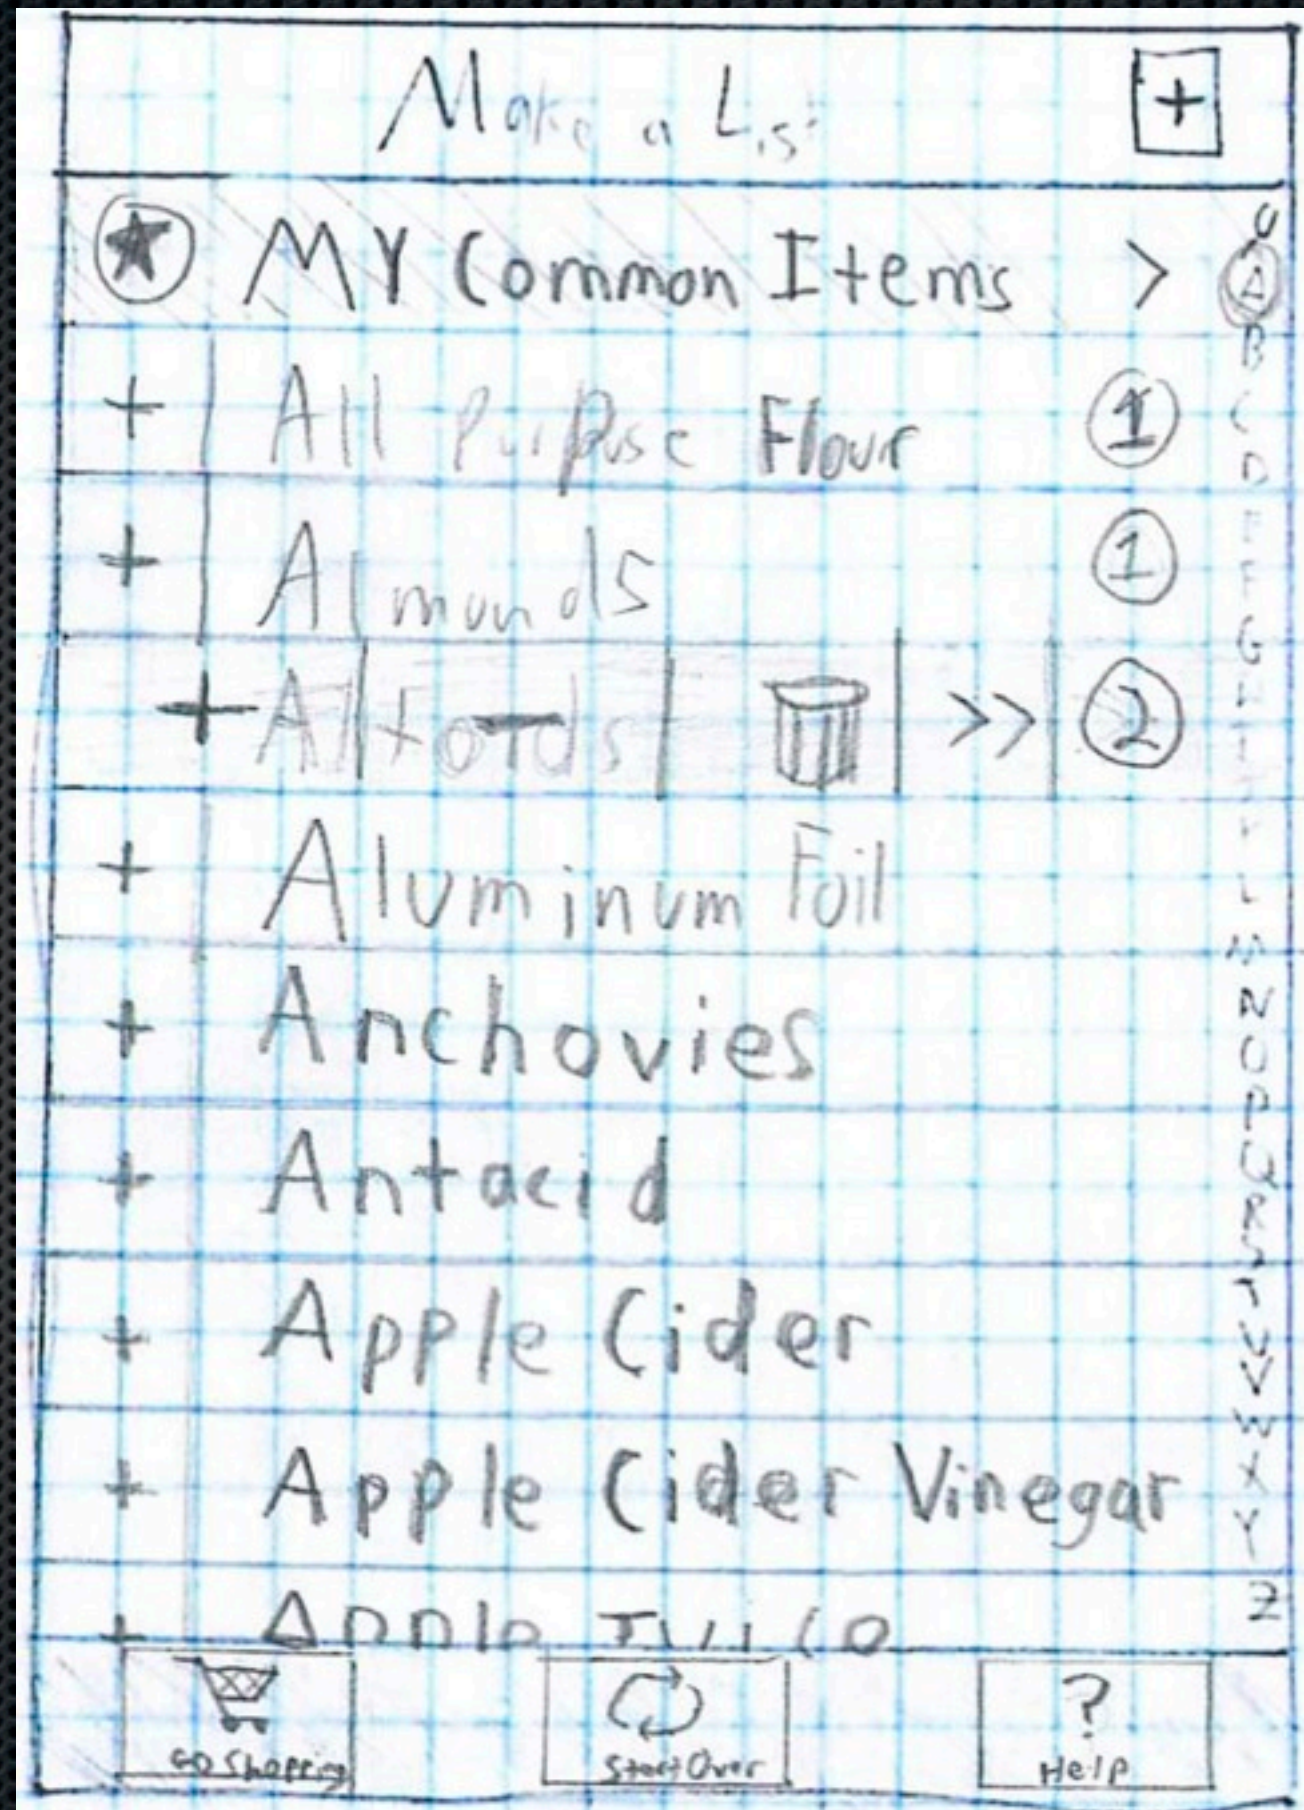 Make a List
+
★ MY Common Items >
+ All Purpose Flour 1
+ Almunds 1
+ Altoids - >> 2
+ Aluminum Foil
+ Anchovies
+ Antacid
+ Apple Cider
+ Apple Cider Vinegar
+ Apple Juice
A
B
C
D
E
F
G
H
I
L
M
N
O
P
Q
R
S
T
U
V
W
X
Y
Z
GO Shopping
Start Over
? Help